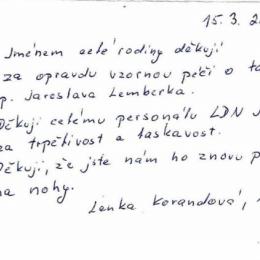 15.3.
Jménem celé rodiny děkuji
za opravdu vzornou péči o
p. Jaroslava Lemberka.
Děkuji celému personálu LDN
za trpělivost a laskavost.
Děkuji, že jste nám ho znovu
na nohy.
Lenka Korandová,